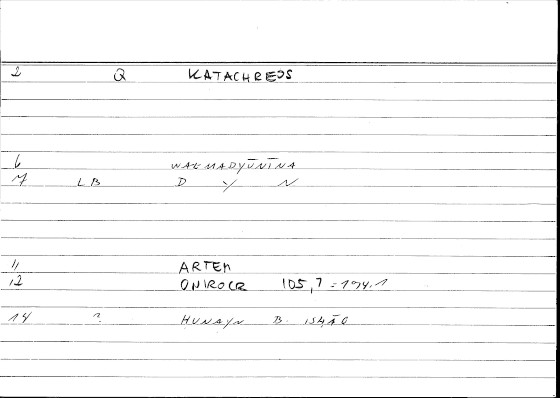 2 Q KATACHREOS
6 WALMADYŪNĪNA
7 LB D Y N
11 ARTEM
12 ONIROCR 105,7 = 174.1
14 ? HUNAYN B. ISḤĀQ